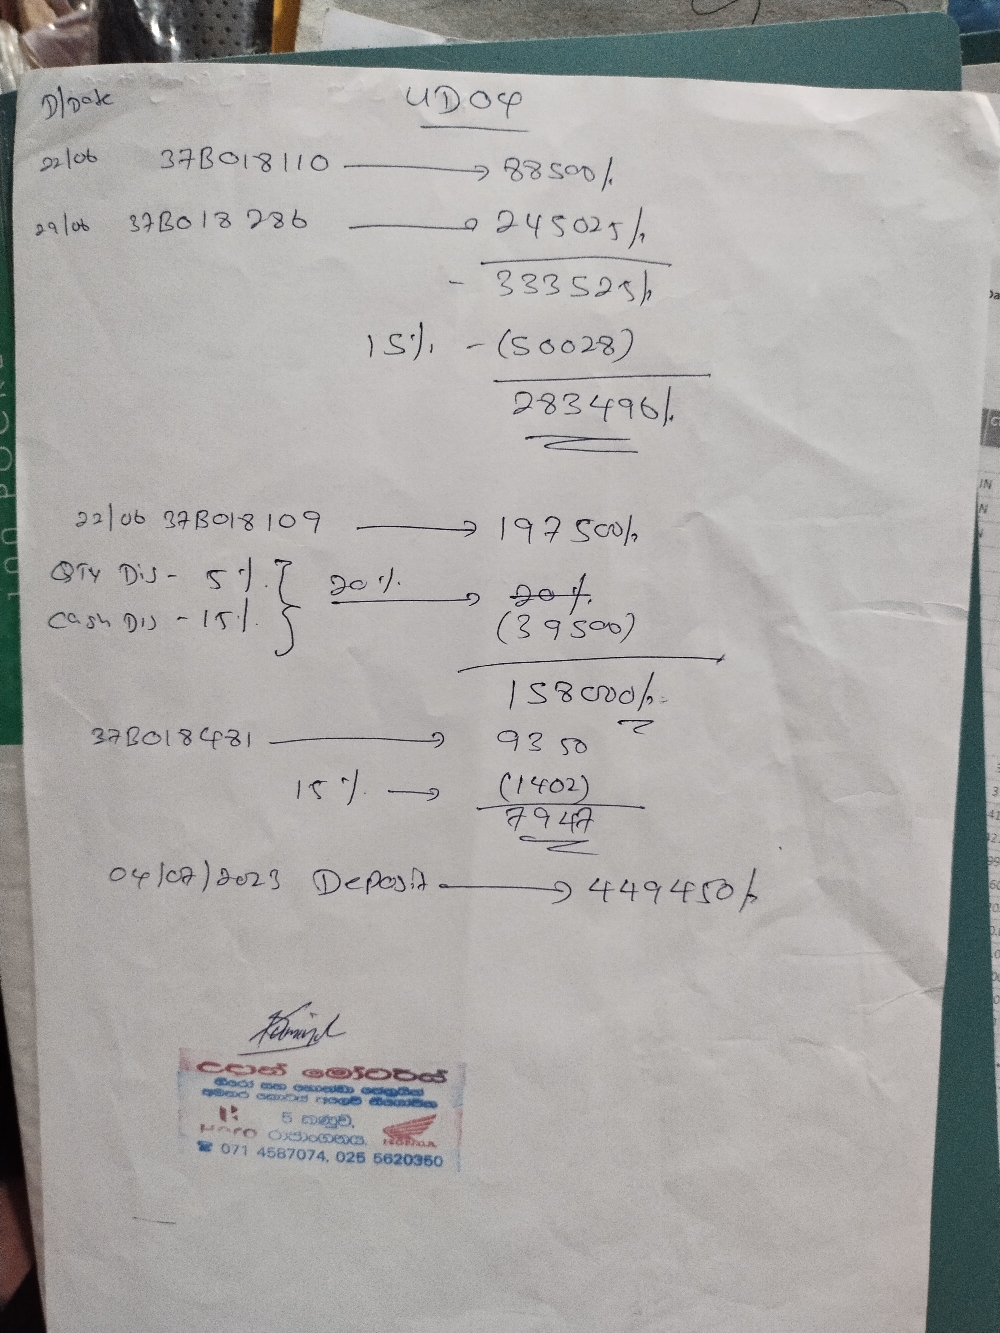 D/Date UD04
22/06 37B018110 → 88500/.
29/06 37B018286 → 245025/.
- 333525/.
15% - (50028)
283496/.
22/06 37B018109 → 197500/.
QTY Dis - 5% } 20% → 20%
Cash Dis - 15% } (39500)
158000/.
37B018481 → 9350
15% → (1402)
7947
04/07/2023 Deposit → 449450/.
උදාන් මෝටර්ස්
හීරෝ සහ හොන්ඩා
5 කණුව,
Hero රාජාංගනය. HONDA
☎ 071 4587074, 025 5620350
100 POCKE